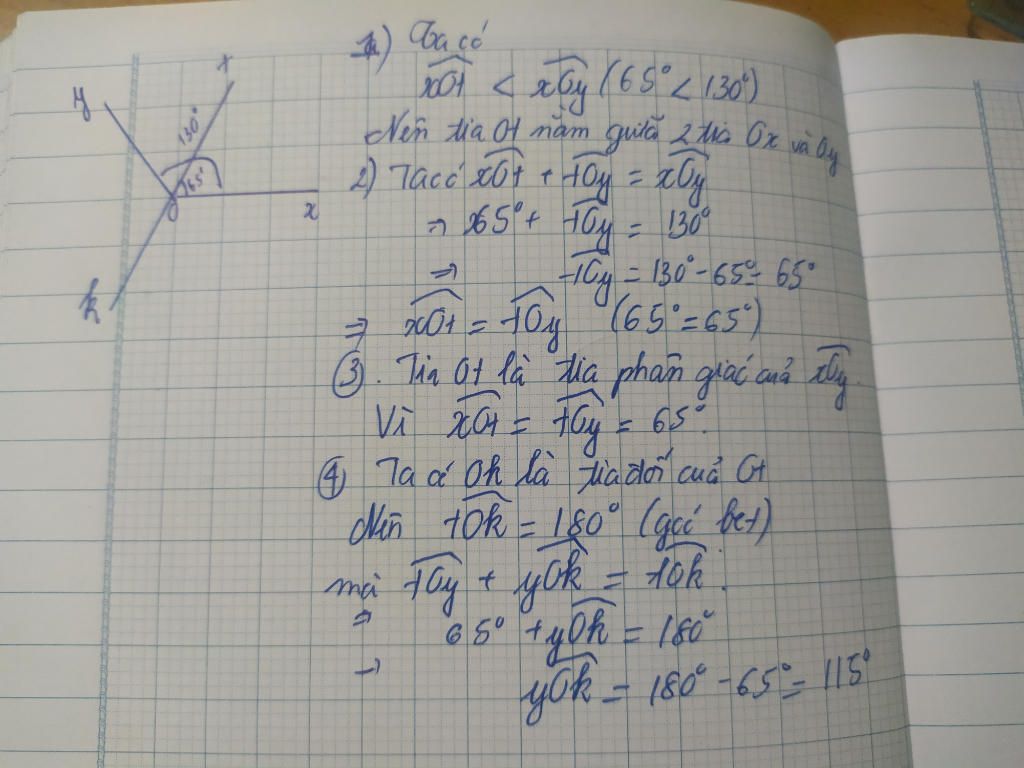 y
t
130°
65°
O
x
k
1) Ta có
xOt < xOy (65° < 130°)
Nên tia Ot nằm giữa 2 tia Ox và Oy
2) Ta có xOt + tOy = xOy
⇒ 65° + tOy = 130°
⇒ tOy = 130° - 65° = 65°
⇒ xOt = tOy (65° = 65°)
③. Tia Ot là tia phân giác của xOy.
Vì xOt = tOy = 65°.
④ Ta có Ok là tia đối của Ot
Nên tOk = 180° (góc bẹt)
mà tOy + yOk = tOk.
⇒ 65° + yOk = 180°
→ yOk = 180° - 65° = 115°